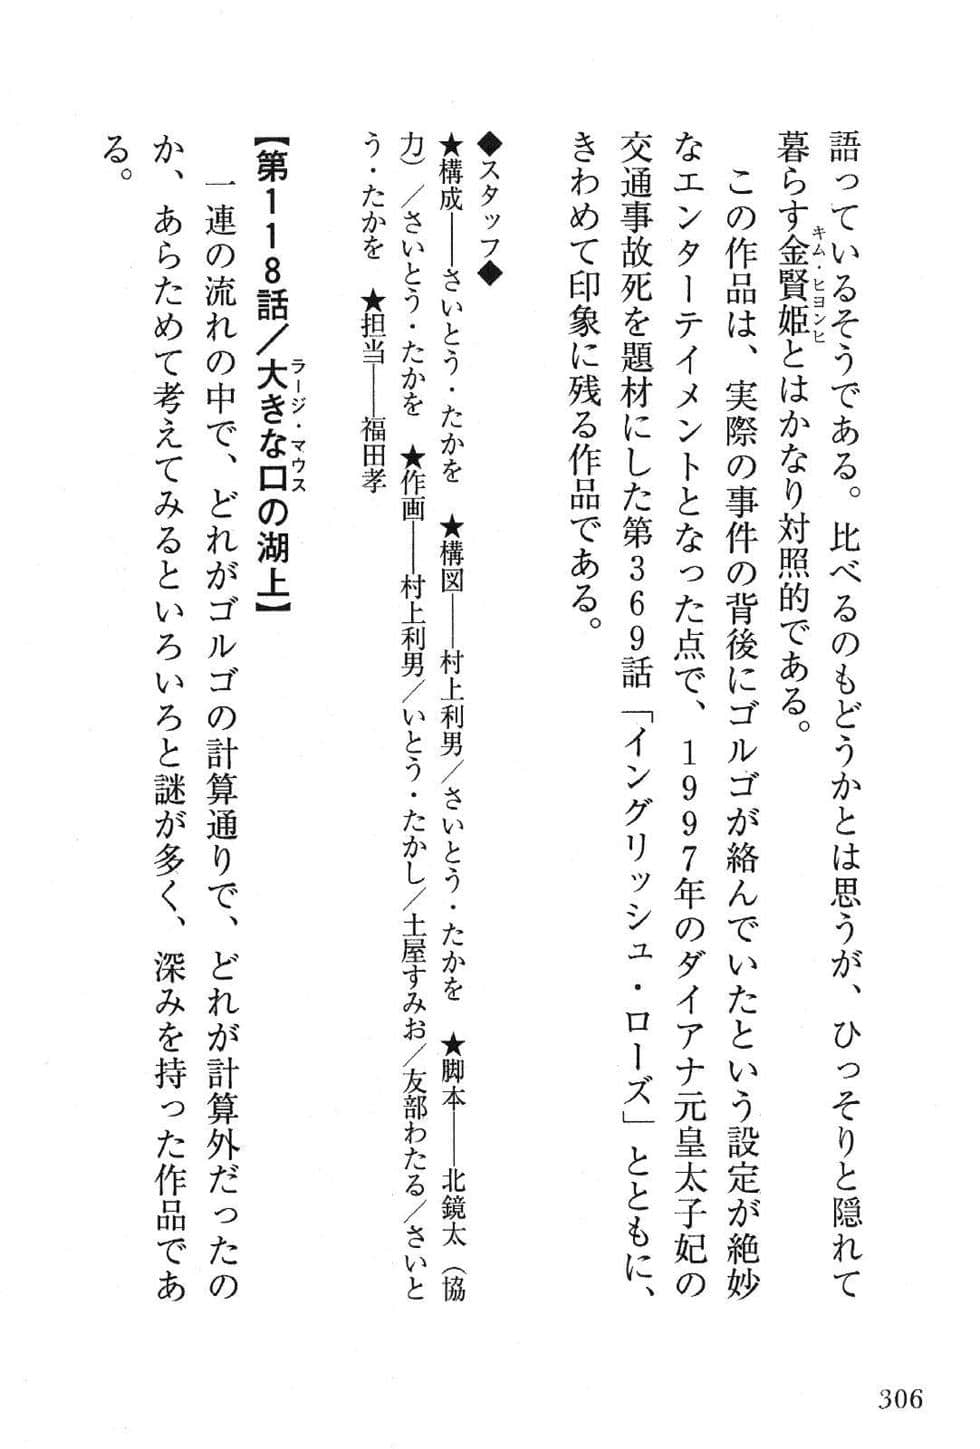 語っているそうである。比べるのもどうかとは思うが、ひっそりと隠れて
暮らす金賢姫とはかなり対照的である。
キム・ヒョンヒ
この作品は、実際の事件の背後にゴルゴが絡んでいたという設定が絶妙
なエンターテイメントとなった点で、1997年のダイアナ元皇太子妃の
交通事故死を題材にした第369話「イングリッシュ・ローズ」とともに、
きわめて印象に残る作品である。
◆スタッフ◆
★構成――さいとう・たかを ★構図――村上利男/さいとう・たかを ★脚本――北鏡太(協
力)/さいとう・たかを ★作画――村上利男/いとう・たかし/土屋すみお/友部わたる/さいと
う・たかを ★担当――福田孝
【第118話/大きな口の湖上】
ラージ・マウス
一連の流れの中で、どれがゴルゴの計算通りで、どれが計算外だったの
か、あらためて考えてみるといろいろと謎が多く、深みを持った作品であ
る。
306